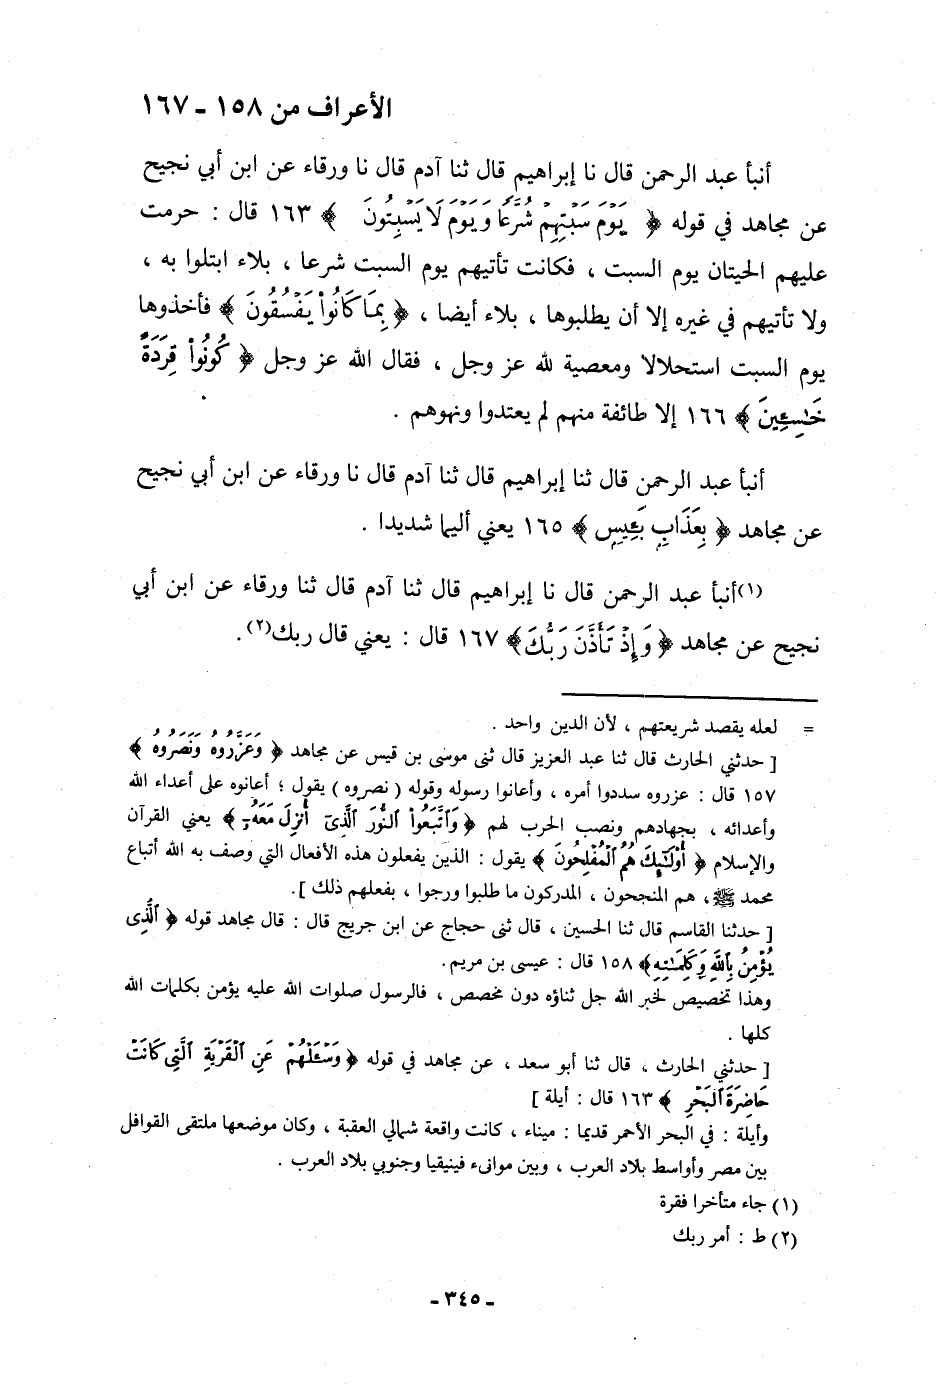 الأعراف من ١٥٨ ـ ١٦٧
أنبأ عبد الرحمن قال نا إبراهيم قال ثنا آدم قال نا ورقاء عن ابن أبي نجيح
عن مجاهد في قوله ﴿ يَوْمَ سَبْتِهِمْ شُرَّعًا وَيَوْمَ لَا يَسْبِتُونَ ﴾ ١٦٣ قال : حرمت
عليهم الحيتان يوم السبت ، فكانت تأتيهم يوم السبت شرعا ، بلاء ابتلوا به ،
ولا تأتيهم في غيره إلا أن يطلبوها ، بلاء أيضا ، ﴿ بِمَا كَانُوا۟ يَفْسُقُونَ ﴾ فأخذوها
يوم السبت استحلالا ومعصية لله عز وجل ، فقال الله عز وجل ﴿ كُونُوا۟ قِرَدَةً
خَـٰسِـِٔينَ ﴾ ١٦٦ إلا طائفة منهم لم يعتدوا ونهوهم .
أنبأ عبد الرحمن قال ثنا إبراهيم قال ثنا آدم قال نا ورقاء عن ابن أبي نجيح
عن مجاهد ﴿ بِعَذَابٍ بَـِٔيسٍ ﴾ ١٦٥ يعني أليما شديدا .
(١)أنبأ عبد الرحمن قال نا إبراهيم قال ثنا آدم قال ثنا ورقاء عن ابن أبي
نجيح عن مجاهد ﴿ وَإِذْ تَأَذَّنَ رَبُّكَ ﴾ ١٦٧ قال : يعني قال ربك(٢) .
= لعله يقصد شريعتهم ، لأن الدين واحد .
[ حدثني الحارث قال ثنا عبد العزيز قال ثنى موسى بن قيس عن مجاهد ﴿ وَعَزَّرُوهُ وَنَصَرُوهُ ﴾
١٥٧ قال : عزروه سددوا أمره ، وأعانوا رسوله وقوله ( نصروه ) يقول ؛ أعانوه على أعداء الله
وأعدائه ، بجهادهم ونصب الحرب لهم ﴿ وَٱتَّبَعُوا۟ ٱلنُّورَ ٱلَّذِىٓ أُنزِلَ مَعَهُۥٓ ﴾ يعني القرآن
والإسلام ﴿ أُو۟لَـٰٓئِكَ هُمُ ٱلْمُفْلِحُونَ ﴾ يقول : الذين يفعلون هذه الأفعال التي وصف به الله أتباع
محمد ﷺ ، هم المنجحون ، المدركون ما طلبوا ورجوا ، بفعلهم ذلك ] .
[ حدثنا القاسم قال ثنا الحسين ، قال ثنى حجاج عن ابن جريج قال : قال مجاهد قوله ﴿ ٱلَّذِى
يُؤْمِنُ بِٱللَّهِ وَكَلِمَـٰتِهِۦ ﴾ ١٥٨ قال : عيسى بن مريم .
وهذا تخصيص لخبر الله جل ثناؤه دون مخصص ، فالرسول صلوات الله عليه يؤمن بكلمات الله
كلها .
[ حدثني الحارث ، قال ثنا أبو سعد ، عن مجاهد في قوله ﴿ وَسْـَٔلْهُمْ عَنِ ٱلْقَرْيَةِ ٱلَّتِى كَانَتْ
حَاضِرَةَ ٱلْبَحْرِ ﴾ ١٦٣ قال : أيلة ]
وأيلة : في البحر الأحمر قديما : ميناء ، كانت واقعة شمالي العقبة ، وكان موضعها ملتقى القوافل
بين مصر وأواسط بلاد العرب ، وبين موانىء فينيقيا وجنوبي بلاد العرب .
(١) جاء متأخرا فقرة
(٢) ط : أمر ربك
- ٣٤٥ -